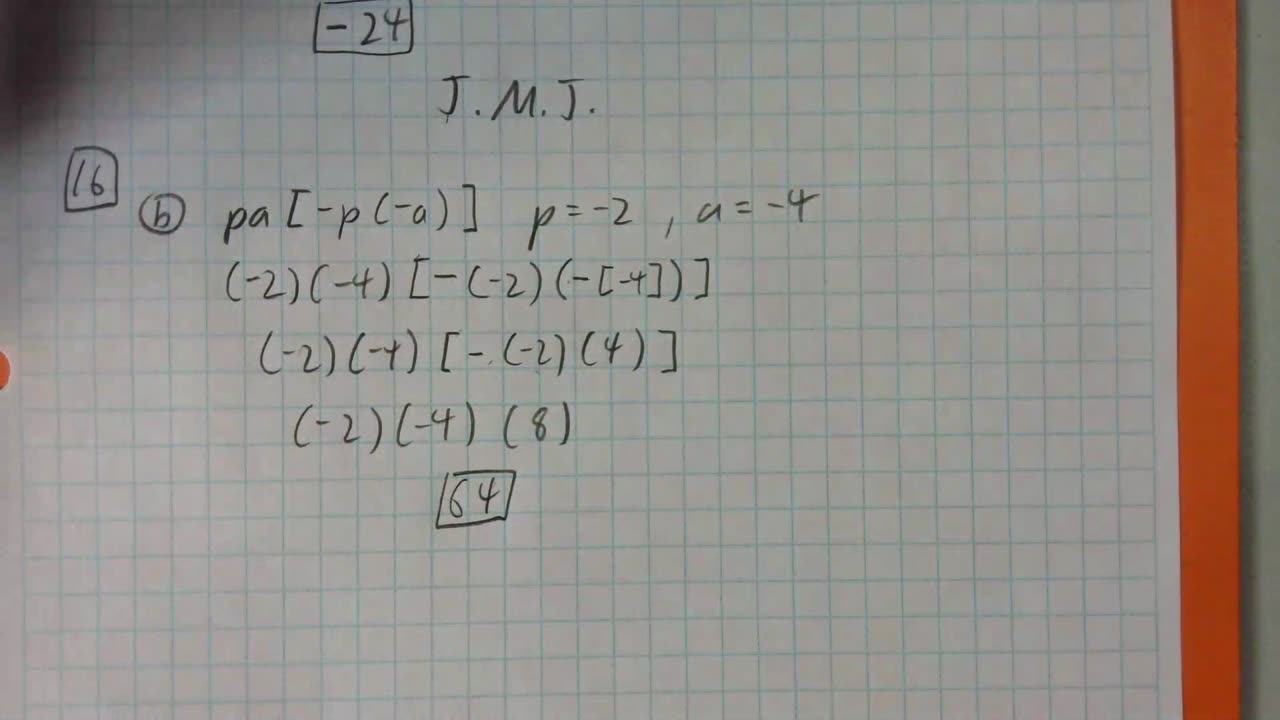 -24
J.M.J.
16
b pa[-p(-a)] p=-2, a=-4
(-2)(-4)[-(-2)(-[-4])]
(-2)(-4)[-(-2)(4)]
(-2)(-4)(8)
64